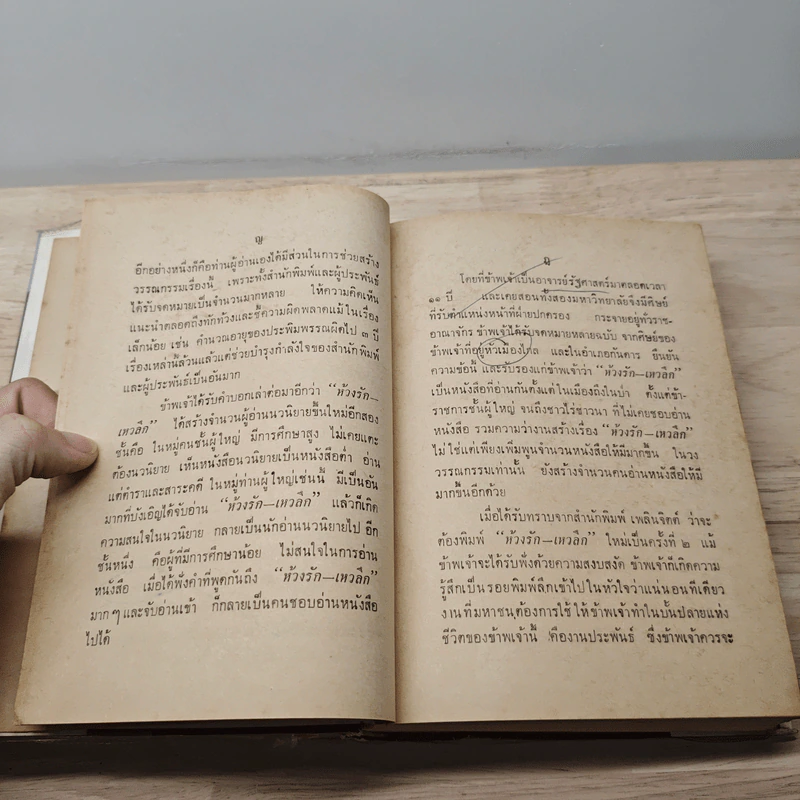 ญ
อีกอย่างหนึ่งก็คือท่านผู้อ่านเองได้มีส่วนในการช่วยสร้าง
วรรณกรรมเรื่องนี้ เพราะทั้งสำนักพิมพ์และผู้ประพันธ์
ได้รับจดหมายเป็นจำนวนมากหลาย ให้ความคิดเห็น
แนะนำตลอดถึงทักท้วงและชี้ความผิดพลาดแม้ในเรื่อง
เล็กน้อย เช่น คำนวณอายุของประพิมพรรณผิดไป ๓ ปี
เรื่องเหล่านี้ล้วนแล้วแต่ช่วยบำรุงกำลังใจของสำนักพิมพ์
และผู้ประพันธ์เป็นอันมาก
ข้าพเจ้าได้รับคำบอกเล่าต่อมาอีกว่า “ห้วงรัก—
เหวลึก” ได้สร้างจำนวนผู้อ่านนวนิยายขึ้นใหม่อีกสอง
ชั้นคือ ในหมู่คนชั้นผู้ใหญ่ มีการศึกษาสูง ไม่เคยแตะ
ต้องนวนิยาย เห็นหนังสือนวนิยายเป็นหนังสือต่ำ อ่าน
แต่ตำราและสาระคดี ในหมู่ท่านผู้ใหญ่เช่นนี้ มีเป็นอัน
มากที่บังเอิญได้จับอ่าน “ห้วงรัก—เหวลึก” แล้วก็เกิด
ความสนใจในนวนิยาย กลายเป็นนักอ่านนวนิยายไป อีก
ชั้นหนึ่ง คือผู้ที่มีการศึกษาน้อย ไม่สนใจในการอ่าน
หนังสือ เมื่อได้ฟังคำที่พูดกันถึง “ห้วงรัก—เหวลึก”
มาก ๆ และจับอ่านเข้า ก็กลายเป็นคนชอบอ่านหนังสือ
ไปได้
โดยที่ข้าพเจ้าเป็นอาจารย์รัฐศาสตร์มาตลอดเวลา
๑๑ ปี และเคยสอนทั้งสองมหาวิทยาลัยจึงมีศิษย์
ที่รับตำแหน่งหน้าที่ฝ่ายปกครอง กระจายอยู่ทั่วราช-
อาณาจักร ข้าพเจ้าได้รับจดหมายหลายฉบับ จากศิษย์ของ
ข้าพเจ้าที่อยู่หัวเมืองไกล และในอำเภอกันดาร ยืนยัน
ความข้อนี้ และรับรองแก่ข้าพเจ้าว่า “ห้วงรัก—เหวลึก”
เป็นหนังสือที่อ่านกันตั้งแต่ในเมืองถึงในป่า ตั้งแต่ข้า-
ราชการชั้นผู้ใหญ่ จนถึงชาวไร่ชาวนา ที่ไม่เคยชอบอ่าน
หนังสือ รวมความว่างานสร้างเรื่อง “ห้วงรัก—เหวลึก”
ไม่ใช่แต่เพียงเพิ่มพูนจำนวนหนังสือให้มีมากขึ้น ในวง
วรรณกรรมเท่านั้น ยังสร้างจำนวนคนอ่านหนังสือให้มี
มากขึ้นอีกด้วย
เมื่อได้รับทราบจากสำนักพิมพ์ เพลินจิตต์ ว่าจะ
ต้องพิมพ์ “ห้วงรัก—เหวลึก” ใหม่เป็นครั้งที่ ๒ แม้
ข้าพเจ้าจะได้รับฟังด้วยความสงบสงัด ข้าพเจ้าก็เกิดความ
รู้สึกเป็นรอยพิมพ์ลึกเข้าไปในหัวใจว่าแน่นอนทีเดียว
งานที่มหาชนต้องการใช้ให้ข้าพเจ้าทำในบั้นปลายแห่ง
ชีวิตของข้าพเจ้านี้ คืองานประพันธ์ ซึ่งข้าพเจ้าควรจะ